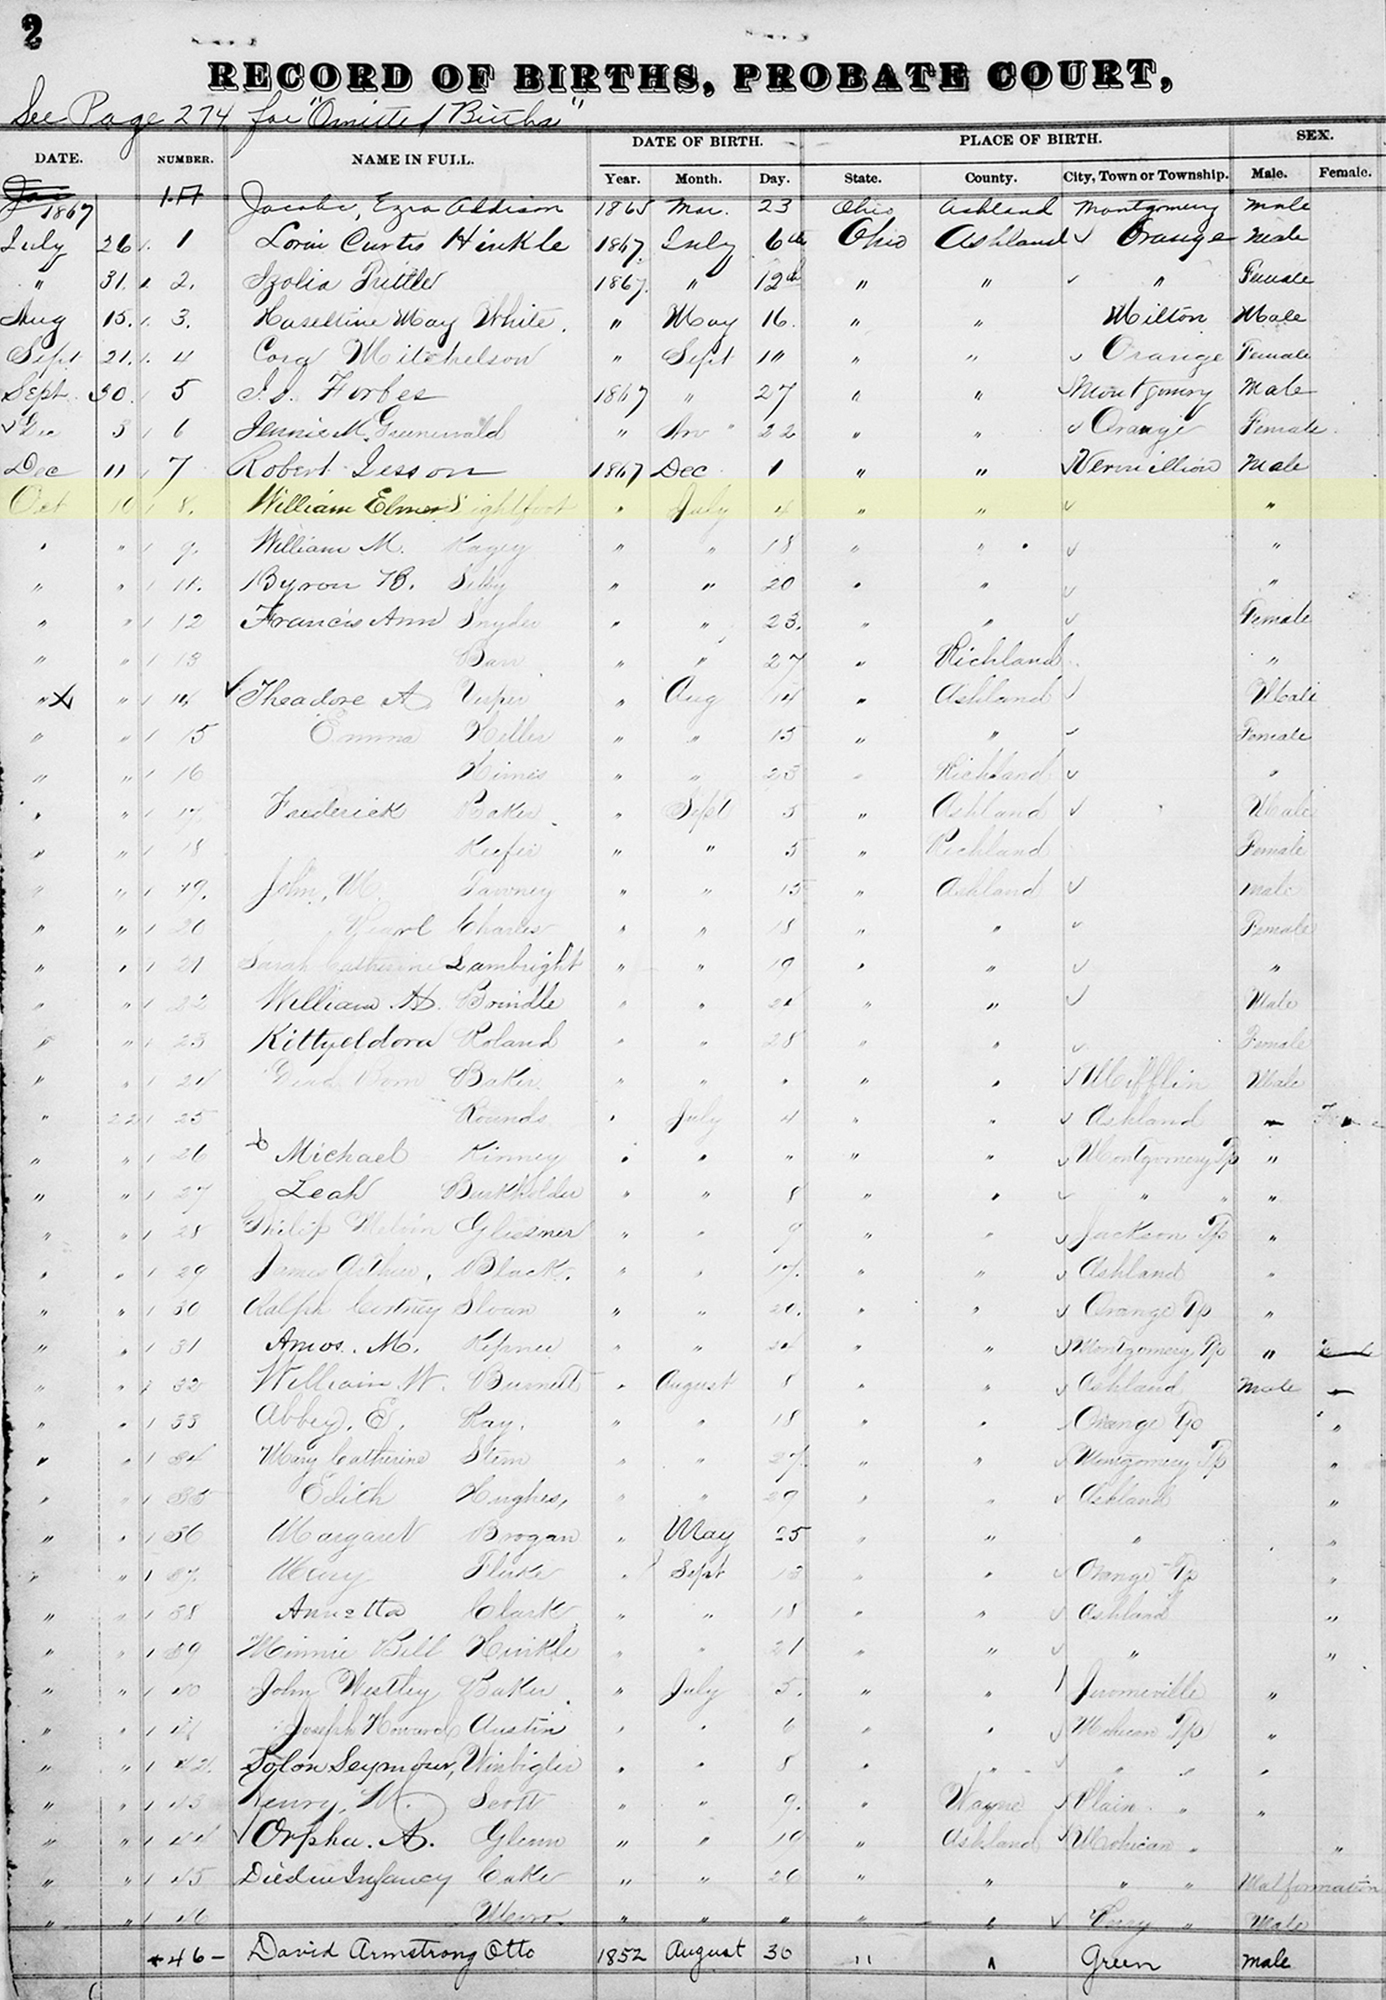 2
RECORD OF BIRTHS, PROBATE COURT,
See Page 274 for "Omitted Births"
DATE. NUMBER. NAME IN FULL. DATE OF BIRTH. PLACE OF BIRTH. SEX.
Year. Month. Day. State. County. City, Town or Township. Male. Female.
1867 1.A Jacobs, Ezra Addison 1865 Mar. 23 Ohio Ashland Montgomery male
July 26 1 Lorin Curtis Hinkle 1867 July 6th Ohio Ashland Orange Male
" 31. 2. Izolia Pittle 1867. " 12th " " " Female
Aug 15. 3. Haseltine May White. " May 16. " " Milton Male
Sept 21. 4 Cora Mitchelson " Sept " " Orange Female
Sept 30. 5 Forbes 1867 " 27 " " Montgomery Male
Dec 3 6 Jennie M. Grunewald " 22 " " Orange Female
Dec 11 7 Robert 1867 Dec 1 " " Vermillion Male
Oct 10 8. William Elmer Lightfoot " July 4 " " "
" " 9. William M. Kagey " " 18 " " "
" " 11. Byron B. Selby " " 20 " " "
" " 12 Francis Ann Snyder " " 23. " " Female
" " 13 Barr " " 27 " Richland "
" " 14 Theadore A Vesper " Aug 14 " Ashland Male
" " 15 Emma Heller " " 15 " " Female
" " 16 Himes " " 23 " Richland "
" " 17 Frederick Baker " Sept 3 " Ashland Male
" " 18 Keefer " " 5 " Richland Female
" " 19. John, M. Tawney " " 15 " Ashland male
" " 20 Pearl Charles " " 18 " " Female
" " 21 Sarah Catherine Lambright " " 19 " " "
" " 22 William H. Brindle " " 21 " " Male
" " 23 Kittyeldora Roland " " 28 " " Female
" " 24 Dead Born Baker " " " " " Mifflin Male
" 22 25 Rounds " July 4 " " Ashland
" " 26 Michael Kinney " " " " " Montgomery Tp "
" " 27 Leah Burkholder " " 8 " " " " "
" " 28 Philip Melvin Glessner " " 9 " " Jackson Tp "
" " 29 James Arthur, Black. " " 17. " " Ashland "
" " 30 Ralph Cortney Sloan " " 20. " " Orange Tp "
" " 31 Amos. M. Kepner " " 24 " " Montgomery Tp "
" " 32 William W. Burnett " August 8 " " Ashland Male
" " 33 Abbey, E. Ray. " " 18 " " Orange Tp "
" " 34 Mary Catherine Stem " " 27. " " Montgomery Tp "
" " 35 Edith Hughes, " " 29 " " Ashland "
" " 36 Margaret Brogan " May 25 " " " "
" " 37. Mary Fluke " Sept 13 " " Orange Tp "
" " 38 Annetta Clark " " 18 " " Ashland "
" " 39 Minnie Bell Hinkle " " 21 " " " "
" " 40 John Westley Baker " July 5. " " Jeromeville "
" " 41 Joseph Howard Austin " " 6 " " Mohican Tp "
" " 42. Solon Seymour, Winbigler " " 8 " " " " "
" " 43 Henry, W. Scott " " 9. " Wayne Plain " "
" " 44 Orpha. A. Glenn " " 19 " Ashland Mohican " "
" " 45 Died in Infancy Cake " " 26 " " " " Malformation
" " 46 " " " " " Perry " Male
+46- David Armstrong Otto 1852 August 30 " " Green male